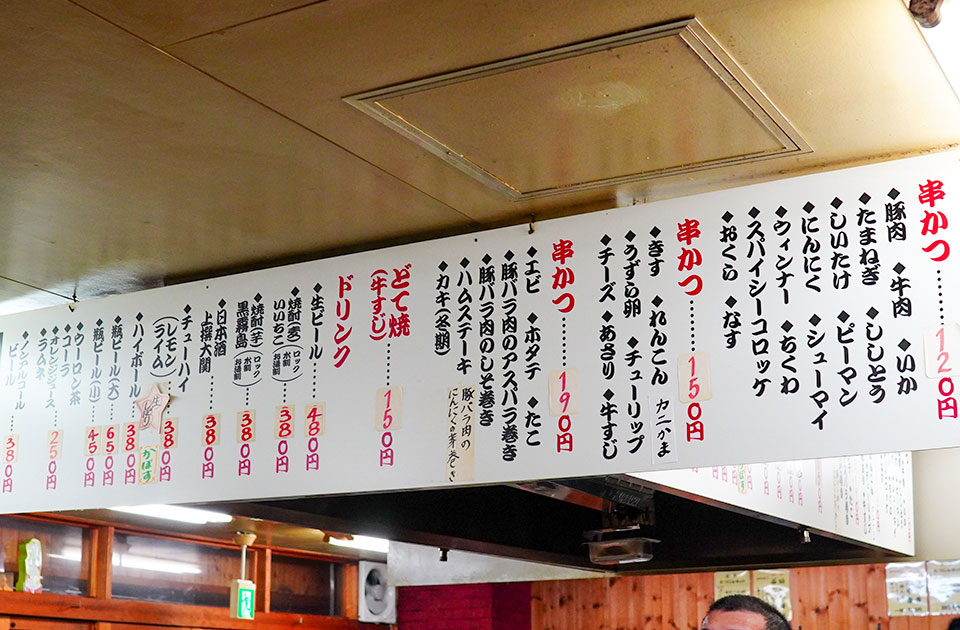 串かつ……120円
◆豚肉 ◆牛肉 ◆いか
◆たまねぎ ◆ししとう
◆しいたけ ◆ピーマン
◆にんにく ◆シューマイ
◆ウィンナー ◆ちくわ
◆スパイシーコロッケ
◆おくら ◆なす
串かつ……150円
◆きす ◆れんこん カニかま
◆うずら卵 ◆チューリップ
◆チーズ ◆あさり ◆牛すじ
串かつ……190円
◆エビ ◆ホタテ ◆たこ
◆豚バラ肉のアスパラ巻き
◆豚バラ肉のしそ巻き
◆ハムステーキ
豚バラ肉の
にんにくの芽巻き
◆カキ(冬期)
どて焼……150円
(牛すじ)
ドリンク
◆生ビール……480円
◆焼酎(麦)
いいちこ
(ロック 水割 お湯割)……380円
◆焼酎(芋)
黒霧島
(ロック 水割 お湯割)……380円
◆日本酒
上撰大関……380円
◆チューハイ
(レモン)
(ライム)……380円
生しぼり
かぼす
◆ハイボール……380円
◆瓶ビール(大)……650円
◆瓶ビール(小)……450円
◆ウーロン茶
◆コーラ
◆オレンジジュース
◆ラムネ……250円
◆ノンアルコール
ビール……380円